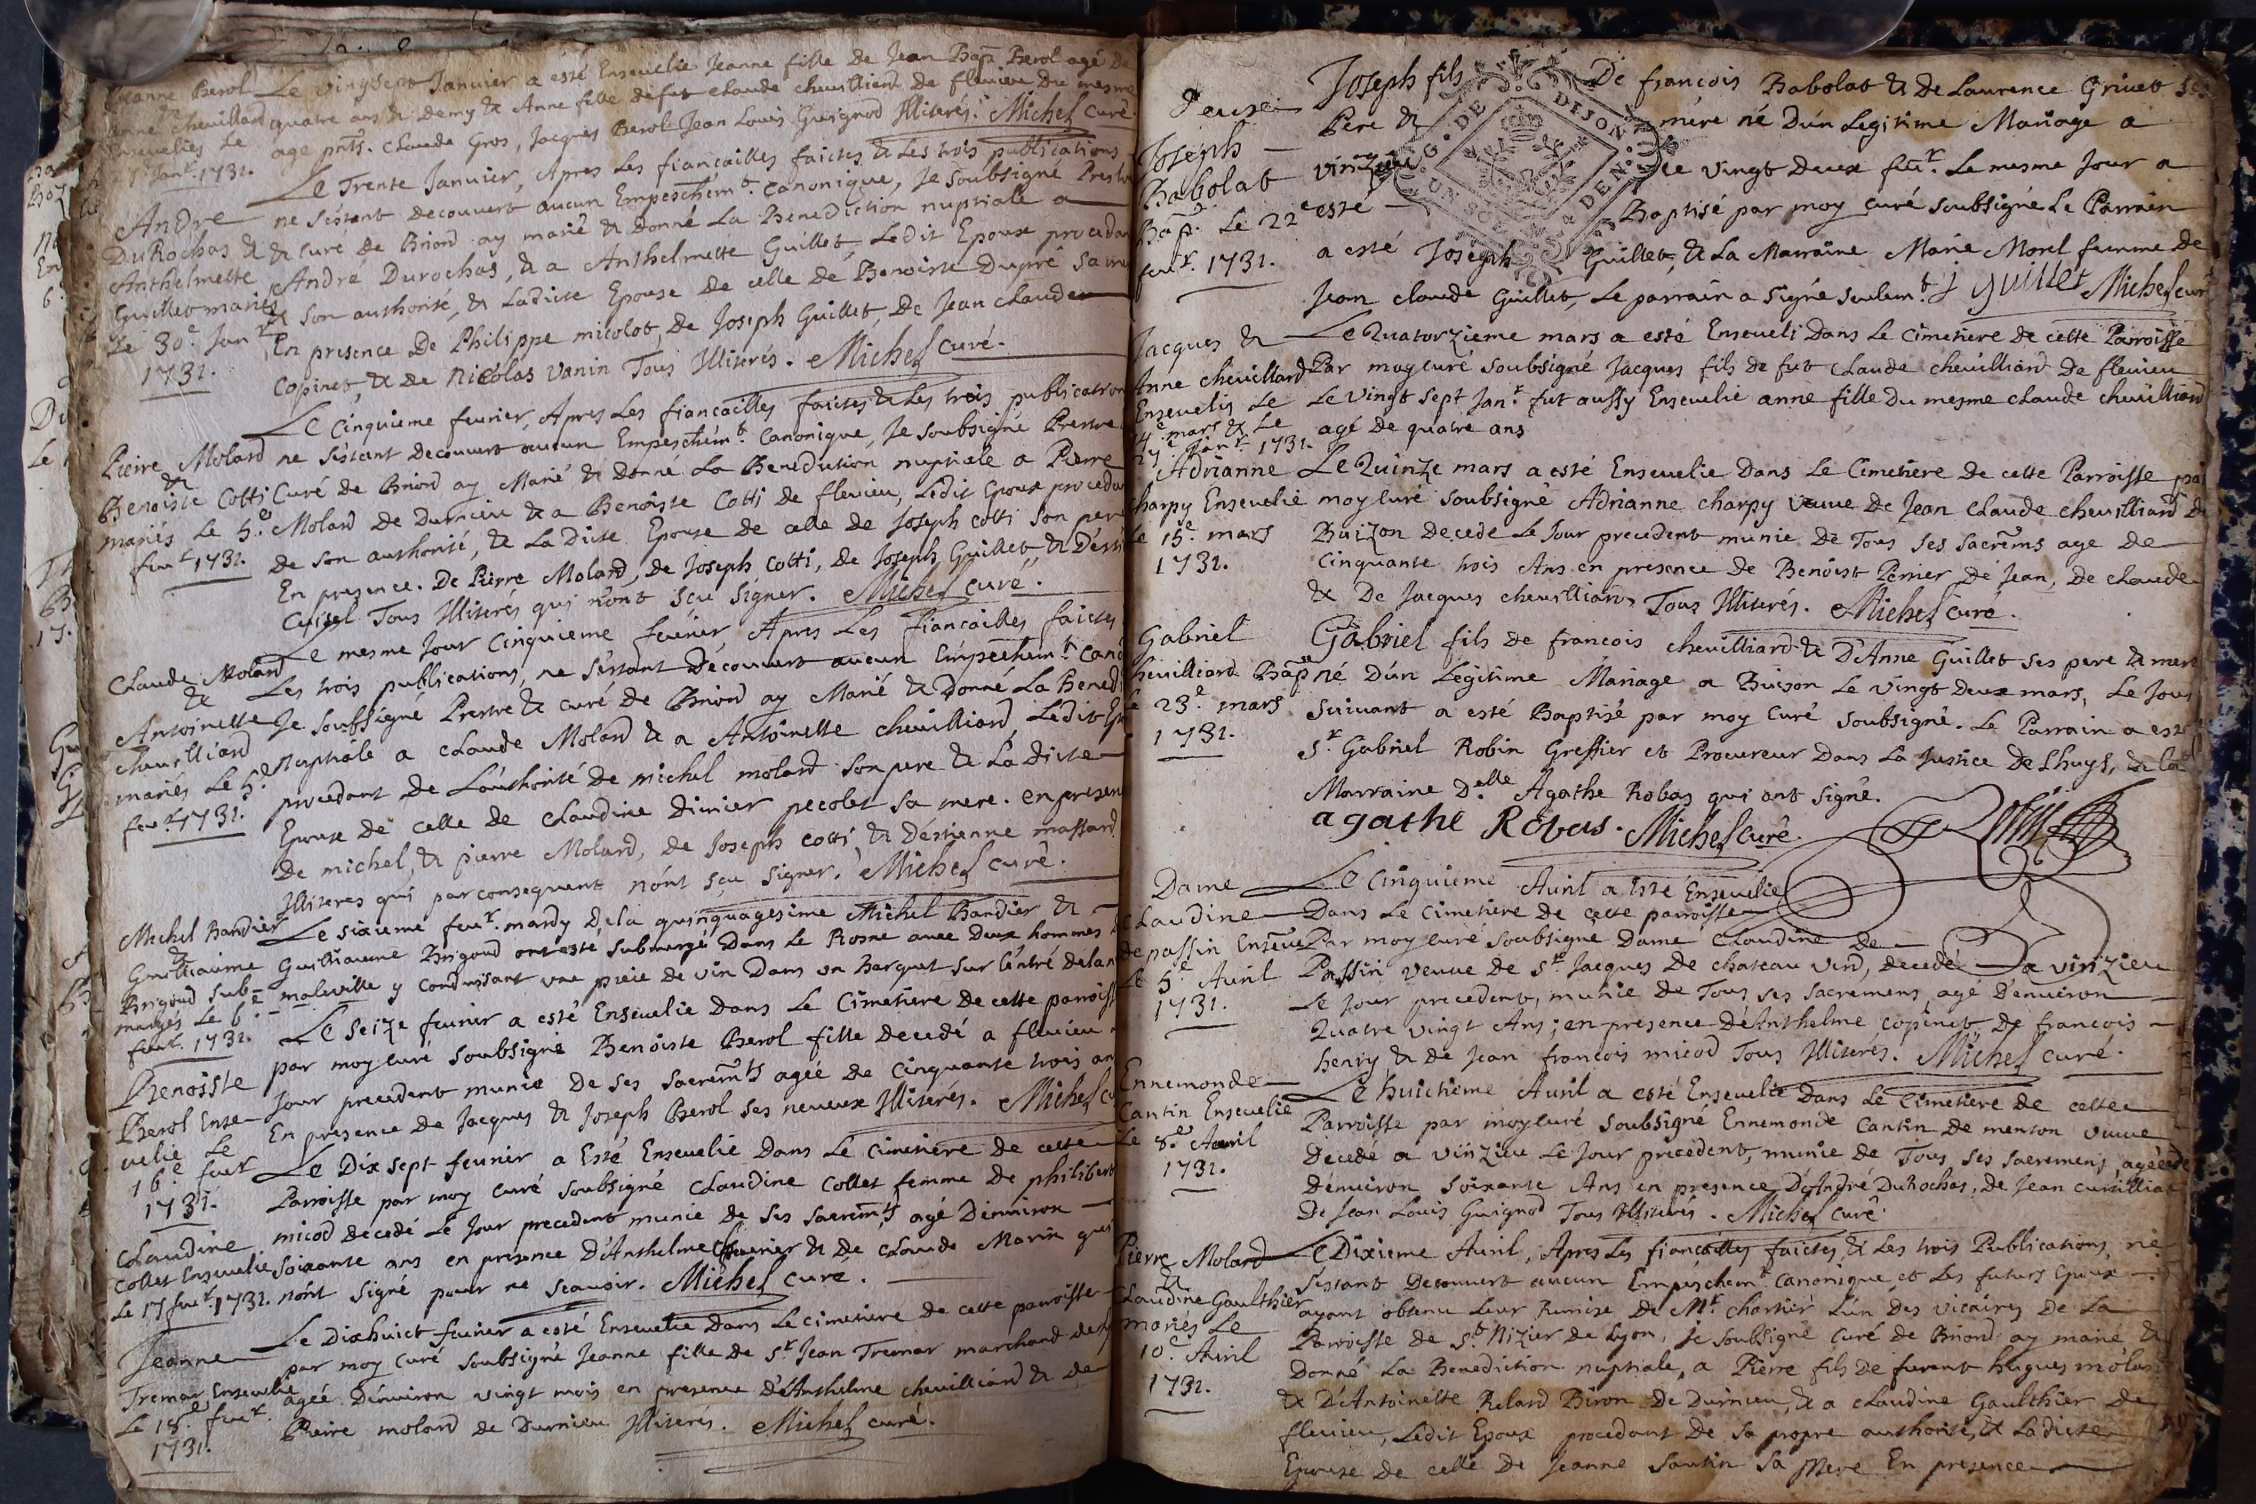 Jeanne Berol
Anne Chevillard
Ensevelies Le
27e Janr. 1731.
Le vingt sept Janvier a esté Ensevelie Jeanne fille de Jean Bapt. Berol agé de
quatre ans & demy & Anne fille de fut Claude chevilliard de flevieu du mesme
age pnts. Claude Gros, Jacques Berol Jean Louis Guignod Illiterés. Michel Curé.
André
DuRochas &
Anthelmette
Guillet mariés
Le 30e. Janr.
1731.
Le Trente Janvier, Apres Les fiancailles faictes & Les trois publications
ne s'éstant decouvert aucun Empeschemt. canonique, Je Soubsigné Prestre
& Curé de Briord ay marié & donné La Benediction nuptiale a
André Durochas, & a Anthelmette Guillet, Ledit Epoux procedant
de Son authorité, & Ladicte Epouse de celle de Benoiste Dupré Sa mere
En presence De Philippe micolot, de Joseph Guillet, De Jean Claude
Copinet, & de Nicolas Vanin Tous Illiterés. Michel Curé.
Pierre Molard
&
Benoiste Cotti
mariés Le 5e.
fevr. 1731.
Le Cinquieme fevrier, Apres Les fiancailles faictes & Les trois publications
ne s'éstant decouvert aucun Empeschémt. Canonique, Je Soubsigné Prestre
Curé de Briord ay Marié & donné La Benediction nuptiale a Pierre
Molard de Durnieu & a Benoiste Cotti de flevieu, Ledit Epoux procedant
de son authorité, & La Dicte Epouse de celle de Joseph Cotti son pere
En presence. De Pierre Molard, de Joseph Cotti, de Joseph Guillet & D'ésti
Cuisel Tous Illiterés qui n'ont sçu signer. Michel Curé.
Claude Molard
&
Antoinette
Chevilliard
mariés Le 5e.
fevr. 1731.
Le mesme Jour Cinquieme fevrier Apres Les fiancailles faictes
Les trois publications, ne s'éstant Découvert aucun Empeschemt. Cano
Je Soubsigné Prestre & curé de Briord ay Marié & donné La Bened
Nuptiale a Claude Molard & a Antoinette Chevilliard Ledit Ep
procedant de L'authorité de michel molard Son pere & La Dicte
Epouse de celle de Claudine Dimier pecolet Sa mere. en presen
De michel, & pierre Molard, de Joseph Cotti, & D'éstienne massard
Illiteres qui par consequent n'ont sçu signer. Michel Curé.
Michel Bandier
&
Guilliaume
Brigoud sub-
margés Le 6e
fevr. 1731.
Le sixieme fevr. mardy de La quinquagesime Michel Bandier &
Guilliaume Brigoud ont esté submergé Dans Le Rosne avec Deux hommes
maleville y conduisant une piece de vin Dans un Barquet sur L'éntré de la n
Benoiste
Berol Ense-
velie Le
16e fevr
1731.
Le Seize fevrier a esté Ensevelie Dans Le Cimetiere de cette parroisse
par moy curé Soubsigné Benoiste Berol fille decedé a flevieu
Jour precedent munie de ses sacremts agée de Cinquante trois ans
En presence de Jacques & Joseph Berol ses neveux Illiterés. Michel cu
Claudine
Collet Ensevelie
Le 17 fevr. 1731.
Le Dix sept fevrier a Esté Ensevelie Dans Le cimetiere de cette
Parroisse par moy curé soubsigné Claudine Collet femme de philibert
micod decedé Le Jour precedent munie de ses sacremts, agé D'énviron
soixante ans en presence D'Anthelme & de Claude Marin qui
n'ónt signé pour ne scavoir. Michel Curé.
Jeanne
Tremar Ensevelie
Le 18e fevr.
1731.
Le Dixhuict fevrier a esté Ensevelie Dans Le cimetiere de cette parroisse
par moy curé soubsigné Jeanne fille de Sr. Jean Tremar marchand de
agée D'énviron vingt mois en presence D'Anthelme chevilliard & de
Pierre molard de Durnieu Illiterés. Michel Curé.
Joseph
Babolat
Bapt. Le 22e
fevr. 1731.
G. DE DIJON
UN SOL
DEN
Joseph fils De françois Babolat & De Laurence Grivet Ses
Pere & mére né D'ún Legitime Mariage a
vinzieu Le Vingt Deux fevr. Le mesme Jour a
esté Baptisé par moy curé soubsigné Le Parrain
a esté Joseph Guillet, & La Marraine Marie Morel femme de
Jean Claude Guillet, Le parrain a signé seulemt. J guillet Michel curé
Jacques &
Anne chevillard
Ensevelis Le
14e mars & Le
27e Janr. 1731.
Le Quatorzieme mars a esté Enseveli Dans Le cimetiere de cette Parroisse
Par moy curé soubsigné Jacques fils de fut Claude chevilliard de flevieu
Le vingt sept Janr. fut aussy Ensevelie anne fille du mesme Claude chevilliard
agé De quatre ans
Adrianne
Charpy Ensevelie
Le 15e. mars
1731.
Le Quinze mars a esté Ensevelie Dans Le Cimetiere de cette Parroisse par
moy curé soubsigné Adrianne charpy Veuve De Jean Claude chevilliard De
Buizon decede Le Jour precedent munie De Tous ses sacremts age De
Cinquante trois Ans en presence De Benoist Perrier De Jean, De Claude
& De Jacques chevilliard, Tous Illiterés. Michel curé.
Gabriel
Chevilliard Bapt
Le 23e. mars
1731.
Gabriel fils de francois chevilliard & D'Anne Guillet ses pere & mere
né D'ún Légitime Mariage a Buison Le Vingt Deux mars, Le Jour
suivant a esté Baptisé par moy curé soubsigné. Le Parrain a esté
Sr. Gabriel Robin Greffier et Procureur Dans La Justice De Lhuys, & La
Marraine Delle Agathe Robas qui ont signé.
agathe Robas. Michel curé. Robin
Dame
Claudine
de passin Enseve
Le 5e Avril
1731.
Le Cinquieme Avril a Esté Ensevelie
Dans Le Cimetiere de cette parroisse
Par moy curé soubsigné Dame Claudine De
Passin veuve de Sr. Jacques De chateau vieux, decedé a vinzieu
Le Jour precedent, munie de Tous ses sacremens, agé D'environ
Quatre vingt Ans; en presence D'Anthelme copinet, De francois
henry, & de Jean françois micod Tous Illiterés. Michel curé.
Ennemonde
Cantin Ensevelie
Le 8e. Avril
1731.
Le huictieme Avril a esté Ensevelie Dans Le Cimetiere De cette
Parroisse par moy curé soubsigné Ennemonde Cantin De menton veuve
Decedé a vinzieu Le Jour precedent, munie de Tous ses sacremens, agée
D'énviron soixante Ans en presence D'André DuRochas, De Jean curtilliat
De Jean Louis Guignod Tous Illiterés. Michel Curé.
Pierre Molard
&
Claudine Gaulthier
mariés Le
10e Avril
1731.
Le Dixieme Avril, Apres Les fiancailles faictes, & Les trois Publications, ne
s'éstant Decouvert aucun Empeschemt. Canonique, et Les futurs Epoux
ayant obtenu Leur Remise de Mr. Chartier L'un Des vicaires De La
Parroisse de St. Nizier de Lyon, Je soubsigné Curé de Briord ay marié &
Donné La Benediction nuptiale, a Pierre fils De furent hugues molard
& D'Antoinette Relard Biron De Durnieu, & a Claudine Gaulthier De
flevieu, Ledit Epoux procedant De sa propre authorité, & Ladicte
Epouse De celle De Jeanne Santin Sa Mere En presence